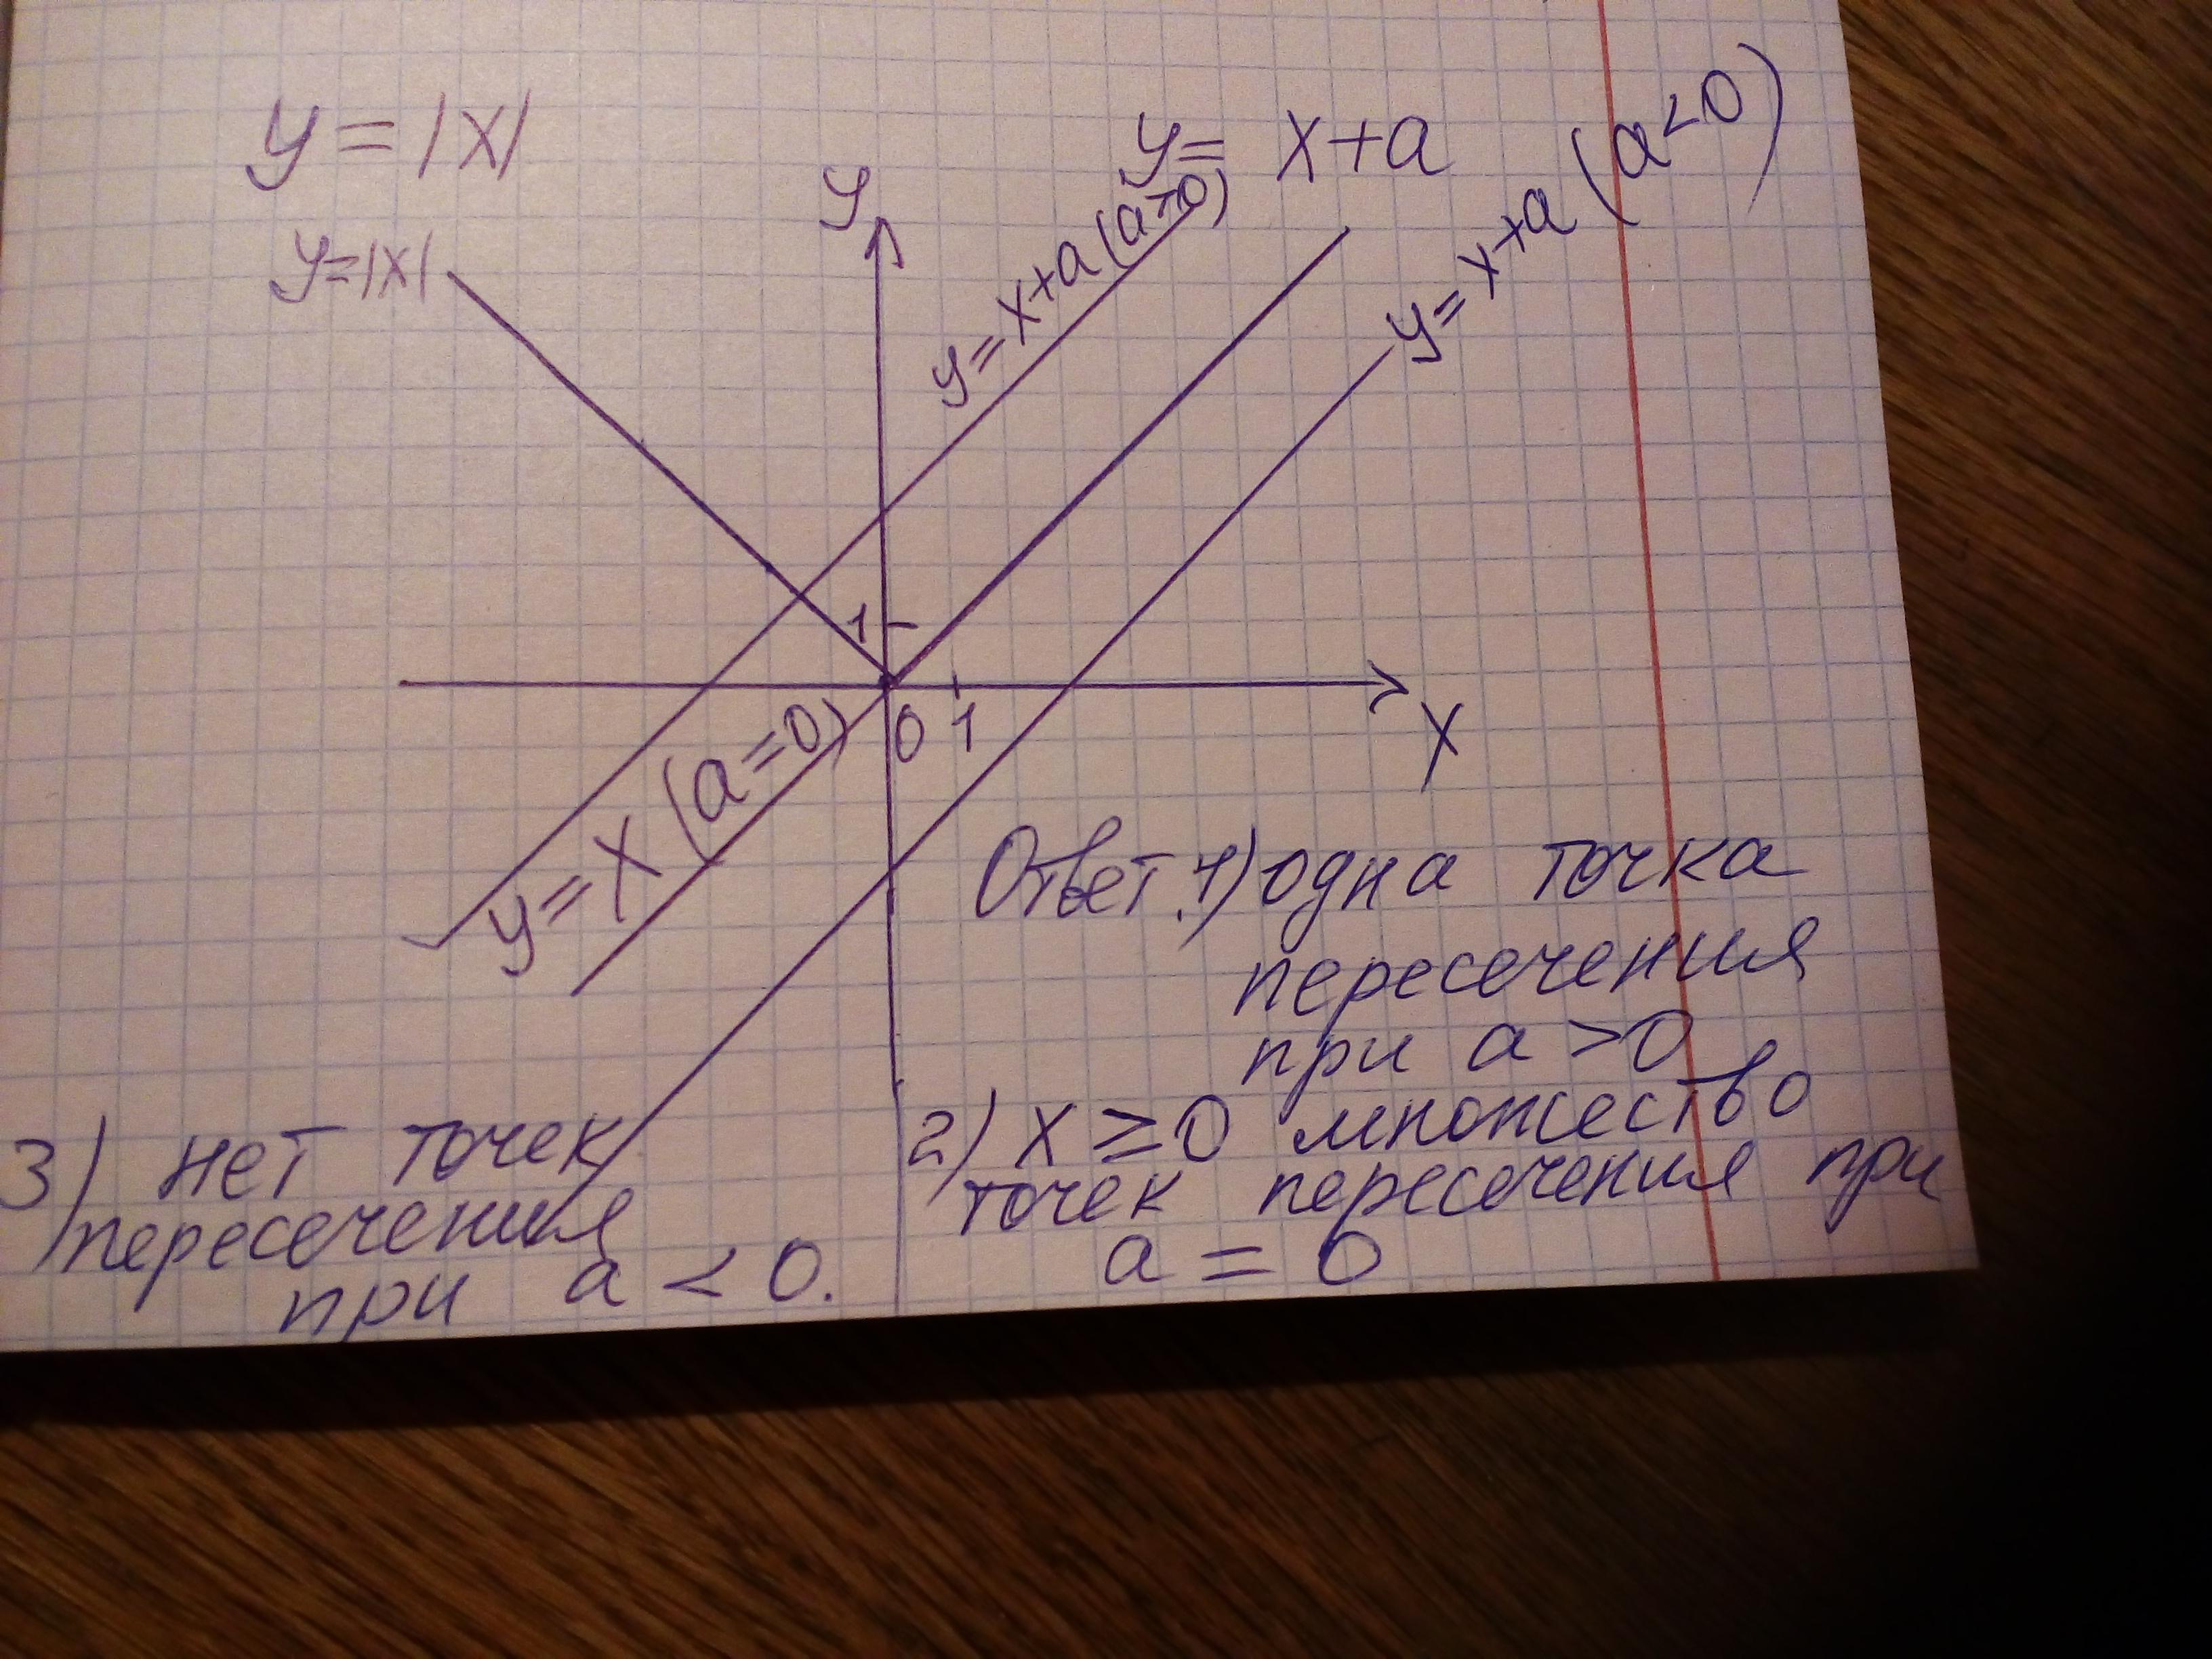 y = |x|
y = x+a
y=|x|
y
y=x+a (a>0)
y=x+a (a<0)
1
0 1
x
y=x (a=0)
Ответ: 1) одна точка
пересечения
при a >0
2) x ≥0 множество
точек пересечения при
a = 0
3) нет точек
пересечения
при a < 0.